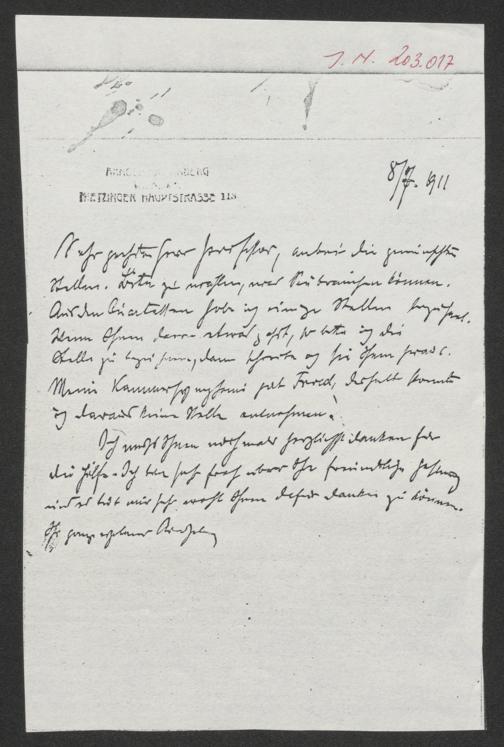 J. N. 203.017
ARNOLD SCHÖNBERG
WIEN
HIETZINGER HAUPTSTRASSE 113
8/7. 1911
Sehr geehrter Herr Professor, anbei die gewünschten
Stellen. Bitte zu wählen, was Sie brauchen können.
Aus den Quartetten habe ich einige Stellen bezeichnet.
Wenn Ihnen davon etwas passt, so bitte ich die
Stelle zu bezeichnen, dann schreibe ich sie Ihnen heraus.
Meine Kammersymphonie hat Fried, deshalb konnte
ich daraus keine Stelle entnehmen.
Ich muß Ihnen nochmals herzlichst danken für
die Hilfe. Ich bin sehr froh über Ihre freundliche Haltung
und es tut mir sehr wohl Ihnen dafür danken zu können.
Ihr ganz ergebener